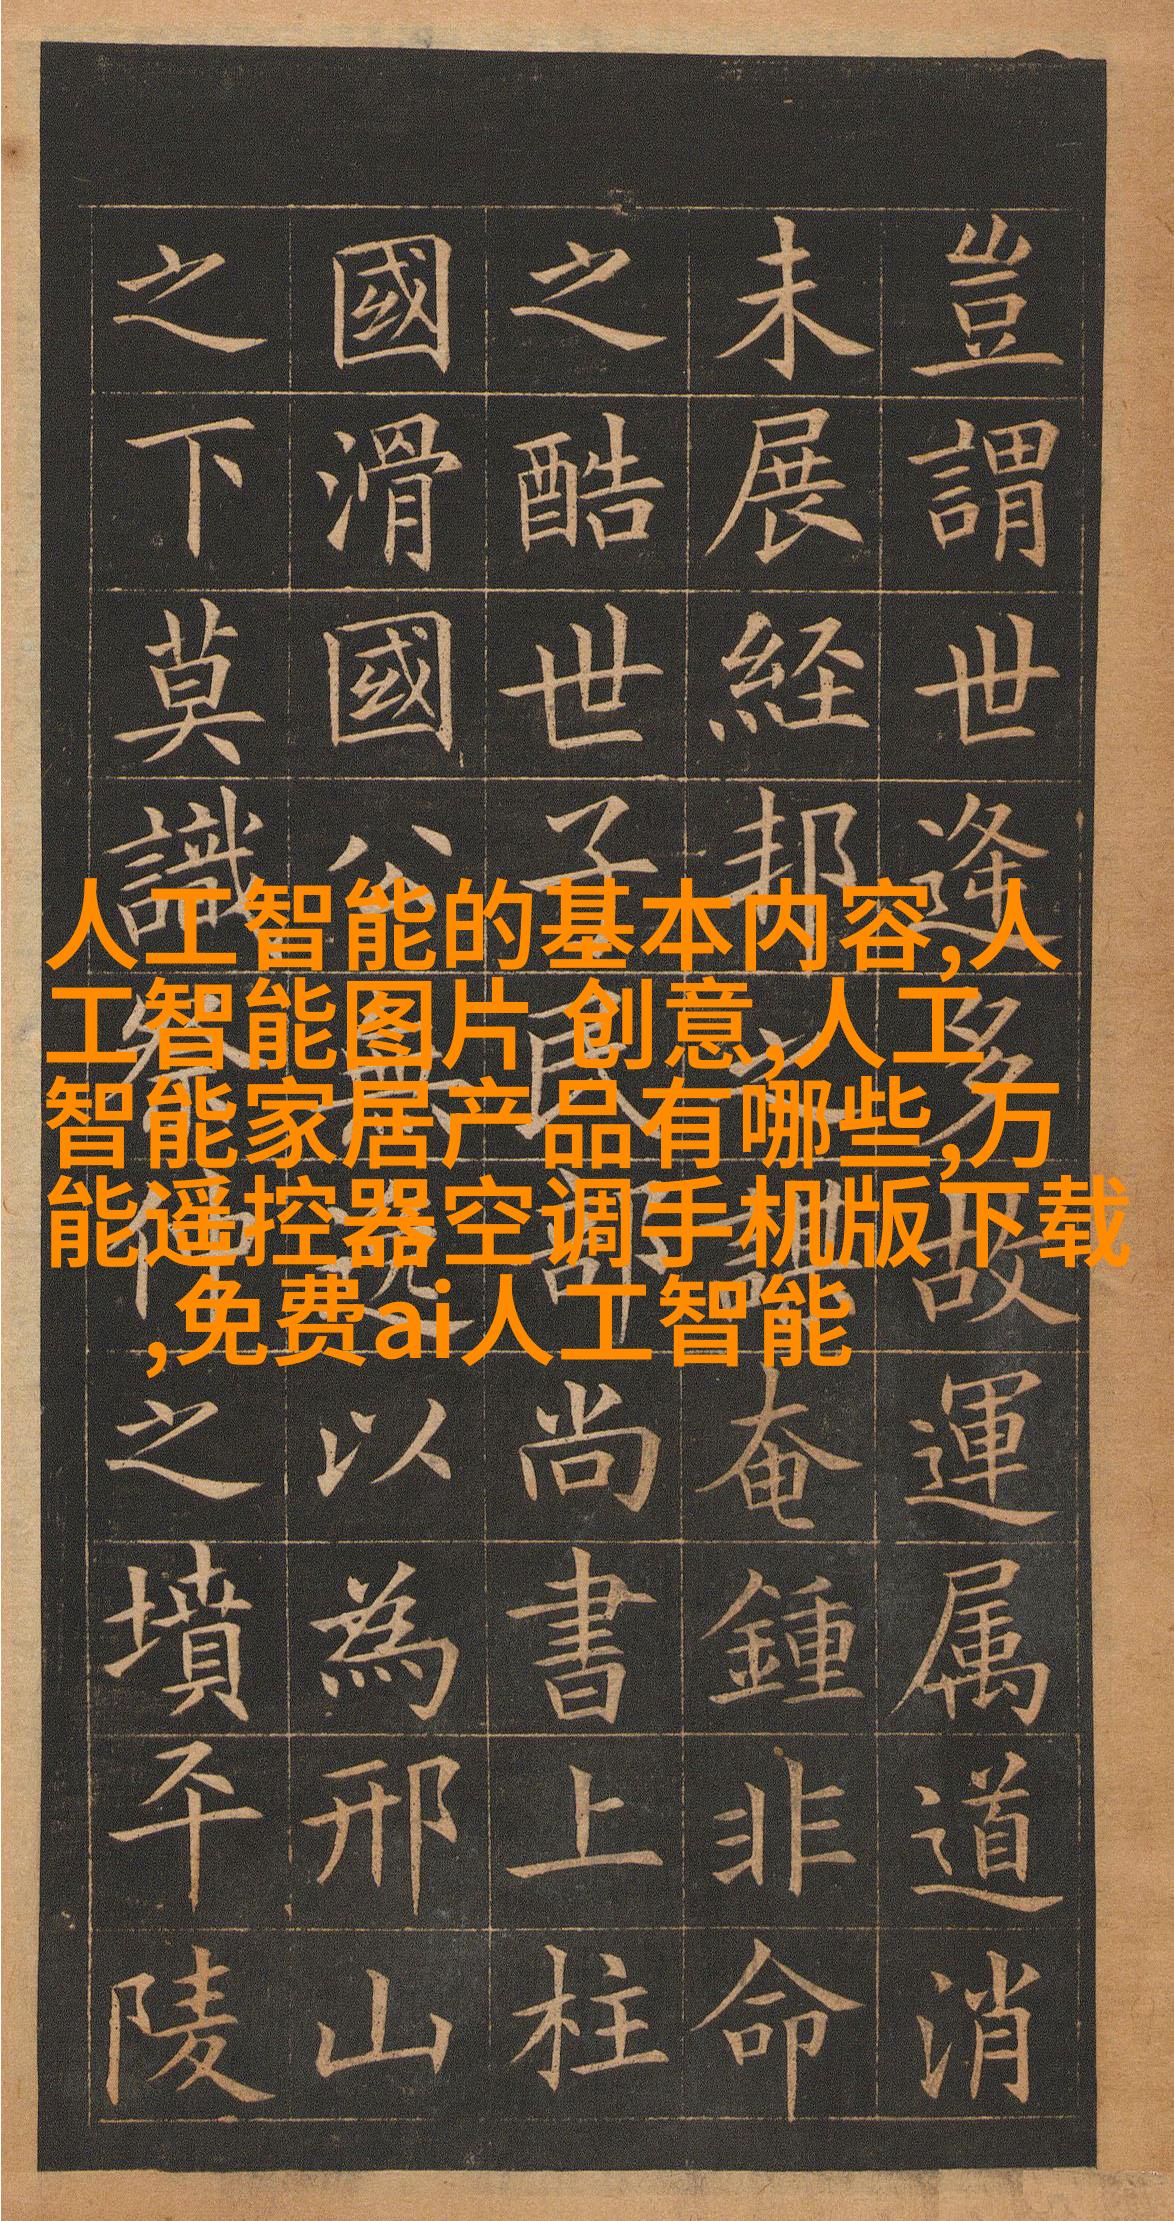 豈謂世逢多故運属道消
未展経邦之謀奄鍾非命
之酷世子民部尚書上柱
國滑國公無逸以為邢山
之下莫識祭仲之墳平陵
人工智能的基本内容,人
工智能图片 创意,人工
智能家居产品有哪些,万
能遥控器空调手机版下载
,免费ai人工智能